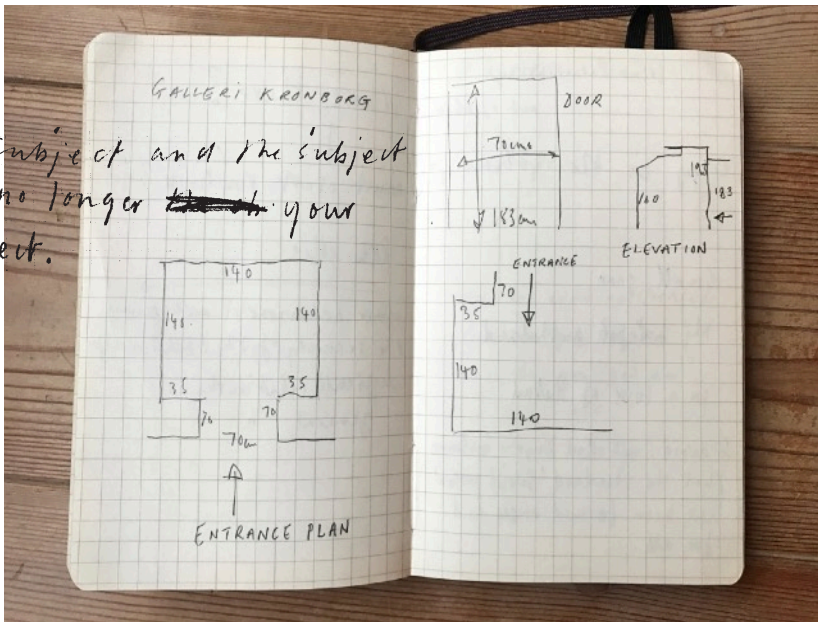 GALLERI KRONBORG
subject and the subject
no longer your
ect.
140
140
140
35
35
70
70
70cm
ENTRANCE PLAN
DOOR
70cms
183cm
160
193
183
ELEVATION
ENTRANCE
70
35
140
140